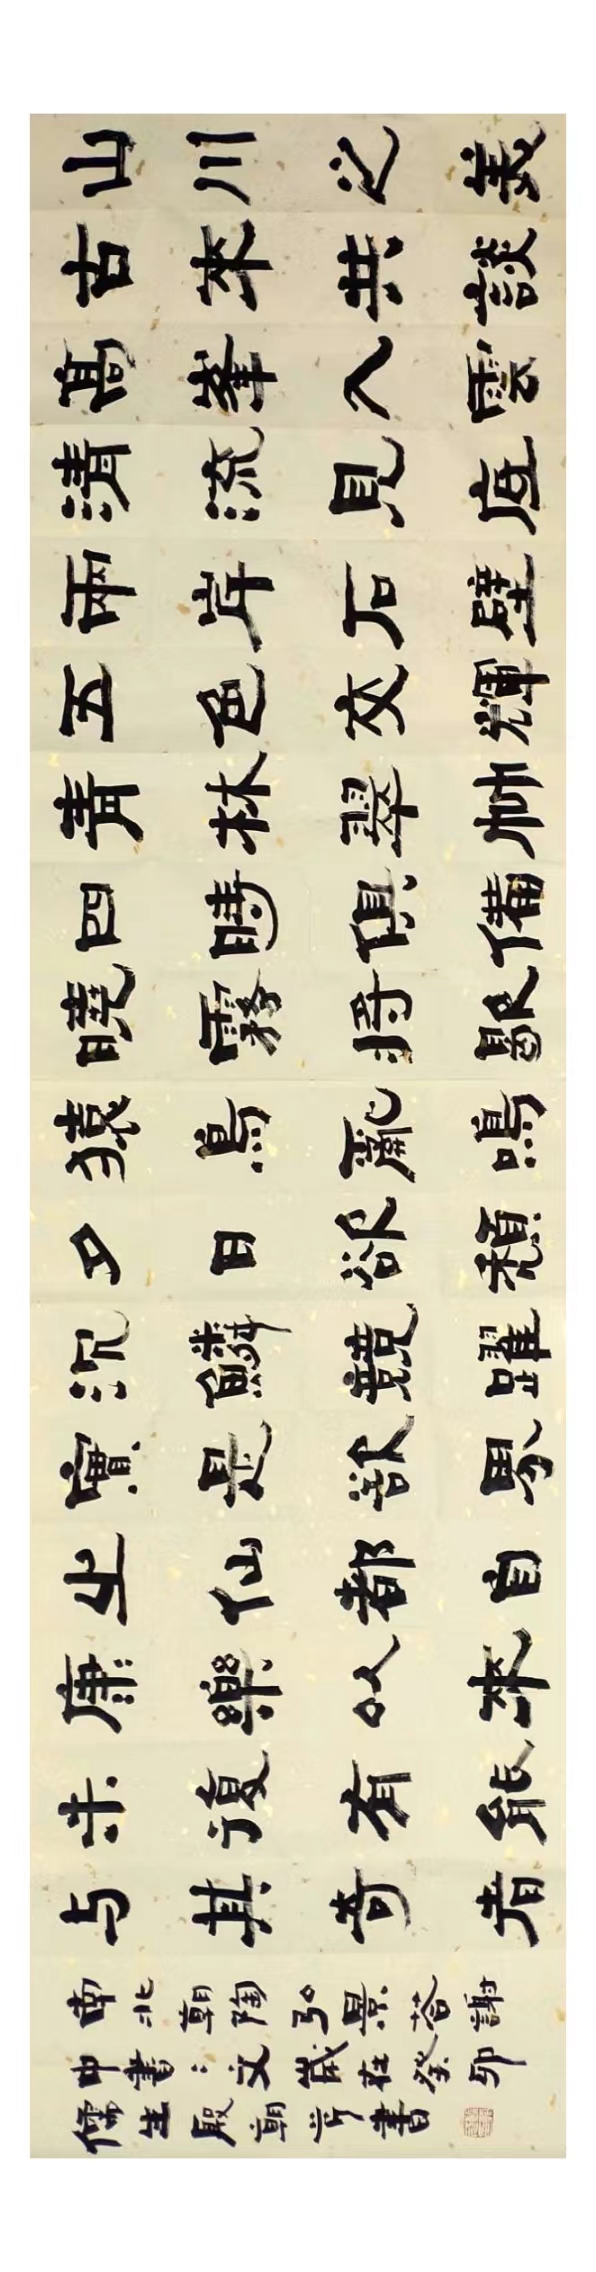 山川之美
古來共談
高峯入雲
清流見底
兩岸石壁
五色交輝
青林翠竹
四時俱備
曉霧將歇
猿鳥亂鳴
夕日欲頹
沉鱗競躍
實是欲界
之仙都自
康樂以來
未復有能
与其奇者
南北朝陶弘景荅謝
中書〻文歲在癸卯
儒生殷朝亨書